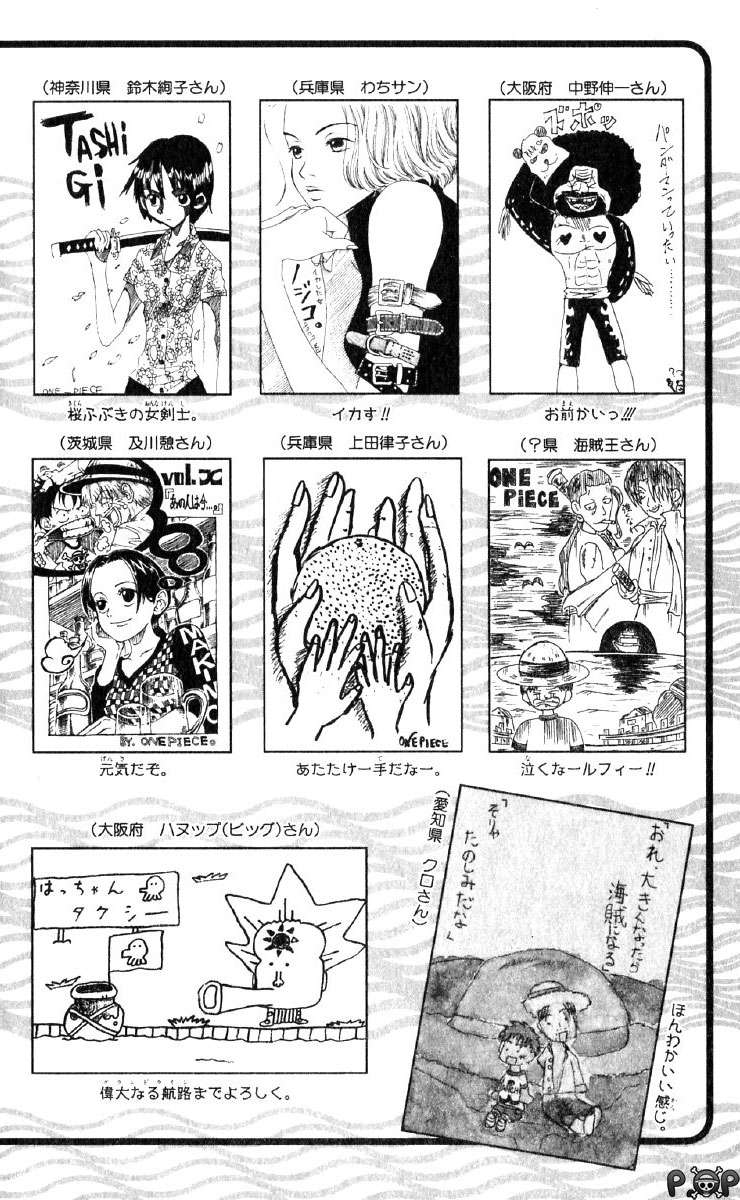 (神奈川県 鈴木絢子さん)
TASHi
Gi
ONE_PIECE
桜ふぶきの女剣士。
(兵庫県 わちサン)
ノジコ。
イカす!!
(大阪府 中野伸一さん)
ズボッ
パンダーマンっていったい…………
お前かいっ!!!
(茨城県 及川憩さん)
vol.X
『あの人は今…。』
MAKINO
BY. ONEPIECE。
元気だぞ。
(兵庫県 上田律子さん)
ONEPIECE
あたたけー手だなー。
(?県 海賊王さん)
ONE
PiECE
泣くなールフィー!!
(大阪府 ハヌップ(ビッグ)さん)
はっちゃん
タクシー
偉大なる航路までよろしく。
グランドライン
(愛知県 クロさん)
「おれ、大きくなったら
海賊になる」
「そりゃ
たのしみだな」
ほんわかいい感じ。
POP